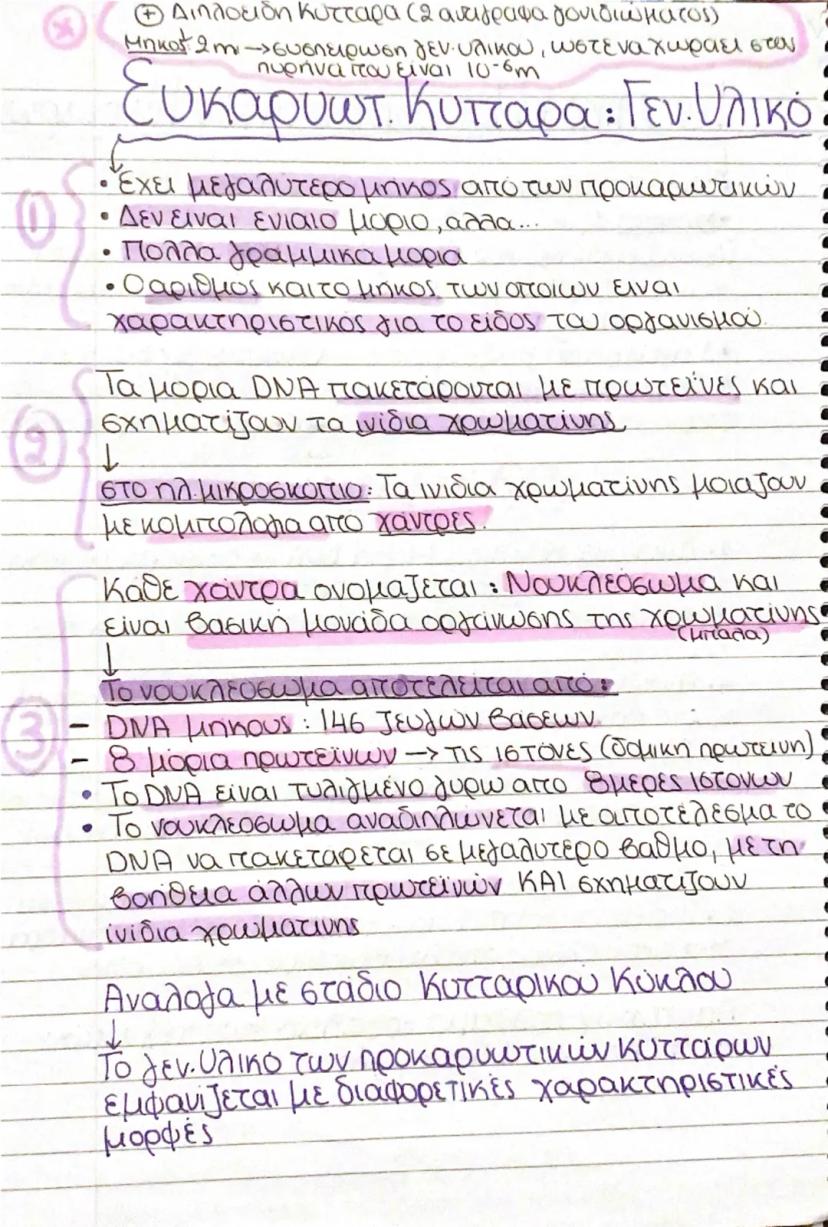 ⊕ Διπλοειδη Κυτταρα (2 αντιγραφα γονιδιωματος)
Μηκος 2m → συσπειρωση γεν. υλικου, ωστε να χωραει στον
πυρηνα που ειναι 10⁻⁶m
Ευκαρυωτ. Κυτταρα: Γεν. Υλικό
① • Έχει μεγαλυτερο μηκος απο των προκαρυωτικών
• Δεν ειναι ενιαιο μοριο, αλλα...
• Πολλα γραμμικα μορια
• Ο αριθμος και το μηκος των οποιων ειναι
χαρακτηριστικος για το είδος του οργανισμού.
② Τα μορια DNA πακετάρονται με πρωτείνες και
σχηματίζουν τα ινίδια χρωματίνης.
↓
στο ηλ. μικροσκοπιο: Τα ινιδια χρωματίνης μοιαζουν
με κομπολογια απο χάντρες.
③ Κάθε χάντρα ονομαζεται: Νουκλεόσωμα και
είναι βασική μονάδα οργάνωσης της χρωματίνης
(μπαλα)
↓
Το νουκλεόσωμα αποτελείται από:
- DNA μηκους: 146 ζευγών βάσεων
- 8 μόρια πρωτεϊνων → τις ιστόνες (δομικη πρωτεινη)
• Το DNA είναι τυλιγμένο γυρω απο 8μερες ιστονων
• Το νουκλεόσωμα αναδιπλώνεται με αποτέλεσμα το
DNA να πακετάρεται σε μεγαλυτερο βαθμο, με τη
βοήθεια άλλων πρωτεϊνών ΚΑΙ σχηματιζουν
ινίδια χρωματινης
Αναλογα με στάδιο Κυτταρικου Κύκλου
↓
Το γεν. Υλικό των προκαρυωτικών κυττάρων
εμφανίζεται με διαφορετικές χαρακτηριστικές
μορφές